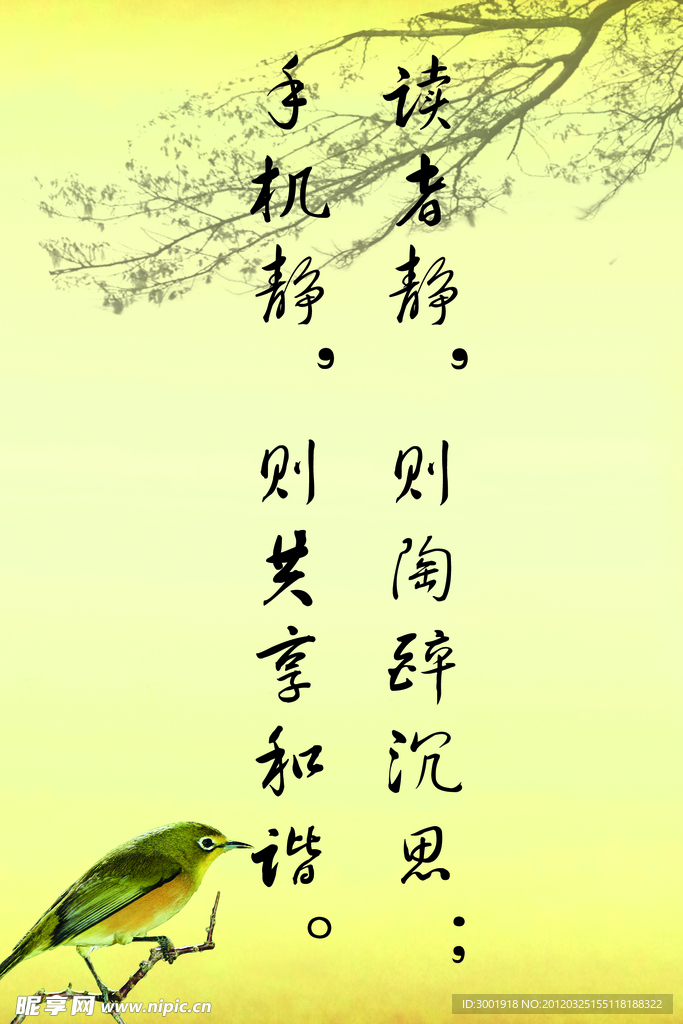 读者静，则陶醉沉思；
手机静，则共享和谐。
昵享网 www.nipic.cn
ID:3001918 NO:20120325155118188322